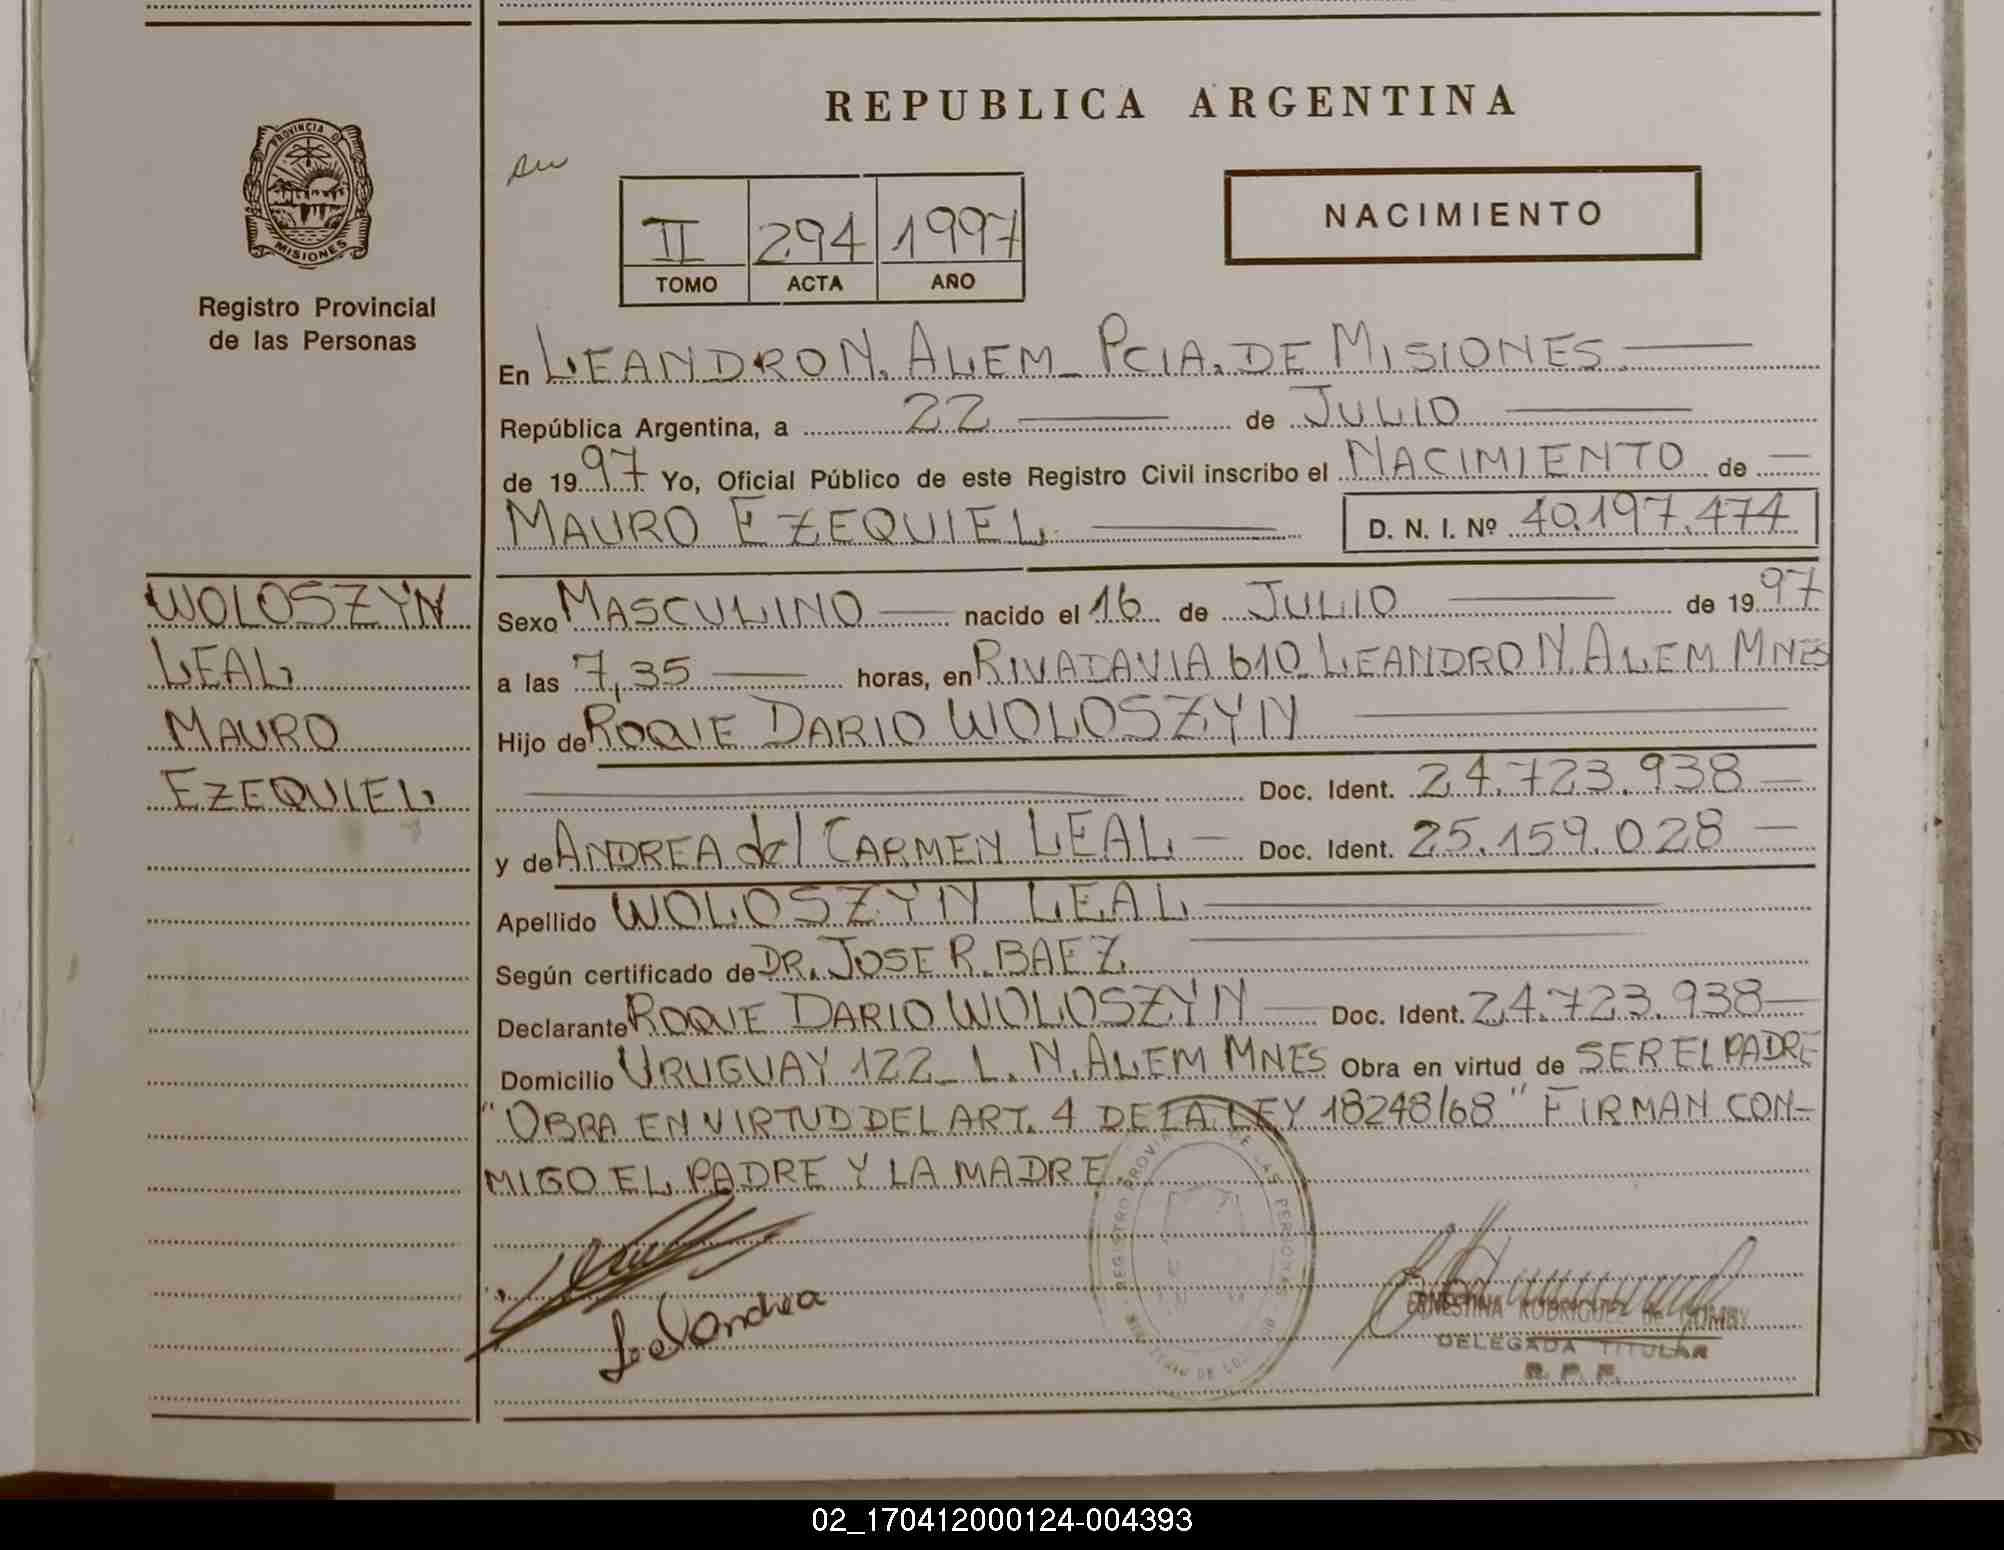 REPUBLICA ARGENTINA
PROVINCIA DE
MISIONES
Registro Provincial
de las Personas
II 294 1997
TOMO ACTA AÑO
NACIMIENTO
En LEANDRO N. ALEM_ PCIA. DE MISIONES
República Argentina, a 22 de JULIO
de 1997 Yo, Oficial Público de este Registro Civil inscribo el NACIMIENTO de
MAURO EZEQUIEL D. N. I. Nº 40.197.474
WOLOSZYN
LEAL
MAURO
EZEQUIEL
Sexo MASCULINO nacido el 16 de JULIO de 1997
a las 7,35 horas, en RIVADAVIA 610_ LEANDRO N. ALEM MNES
Hijo de ROQUE DARIO WOLOSZYN
Doc. Ident. 24.723.938
y de ANDREA del CARMEN LEAL Doc. Ident. 25.159.028
Apellido WOLOSZYN LEAL
Según certificado de DR. JOSE R. BAEZ
Declarante ROQUE DARIO WOLOSZYN Doc. Ident. 24.723.938
Domicilio URUGUAY 122_ L. N. ALEM MNES Obra en virtud de SER EL PADRE
"OBRA EN VIRTUD DEL ART. 4 DE LA LEY 18248/68" FIRMAN CON-
MIGO EL PADRE Y LA MADRE
Leal Andrea
ERNESTINA RODRIGUEZ de
DELEGADA TITULAR
R. P. P.
02_170412000124-004393